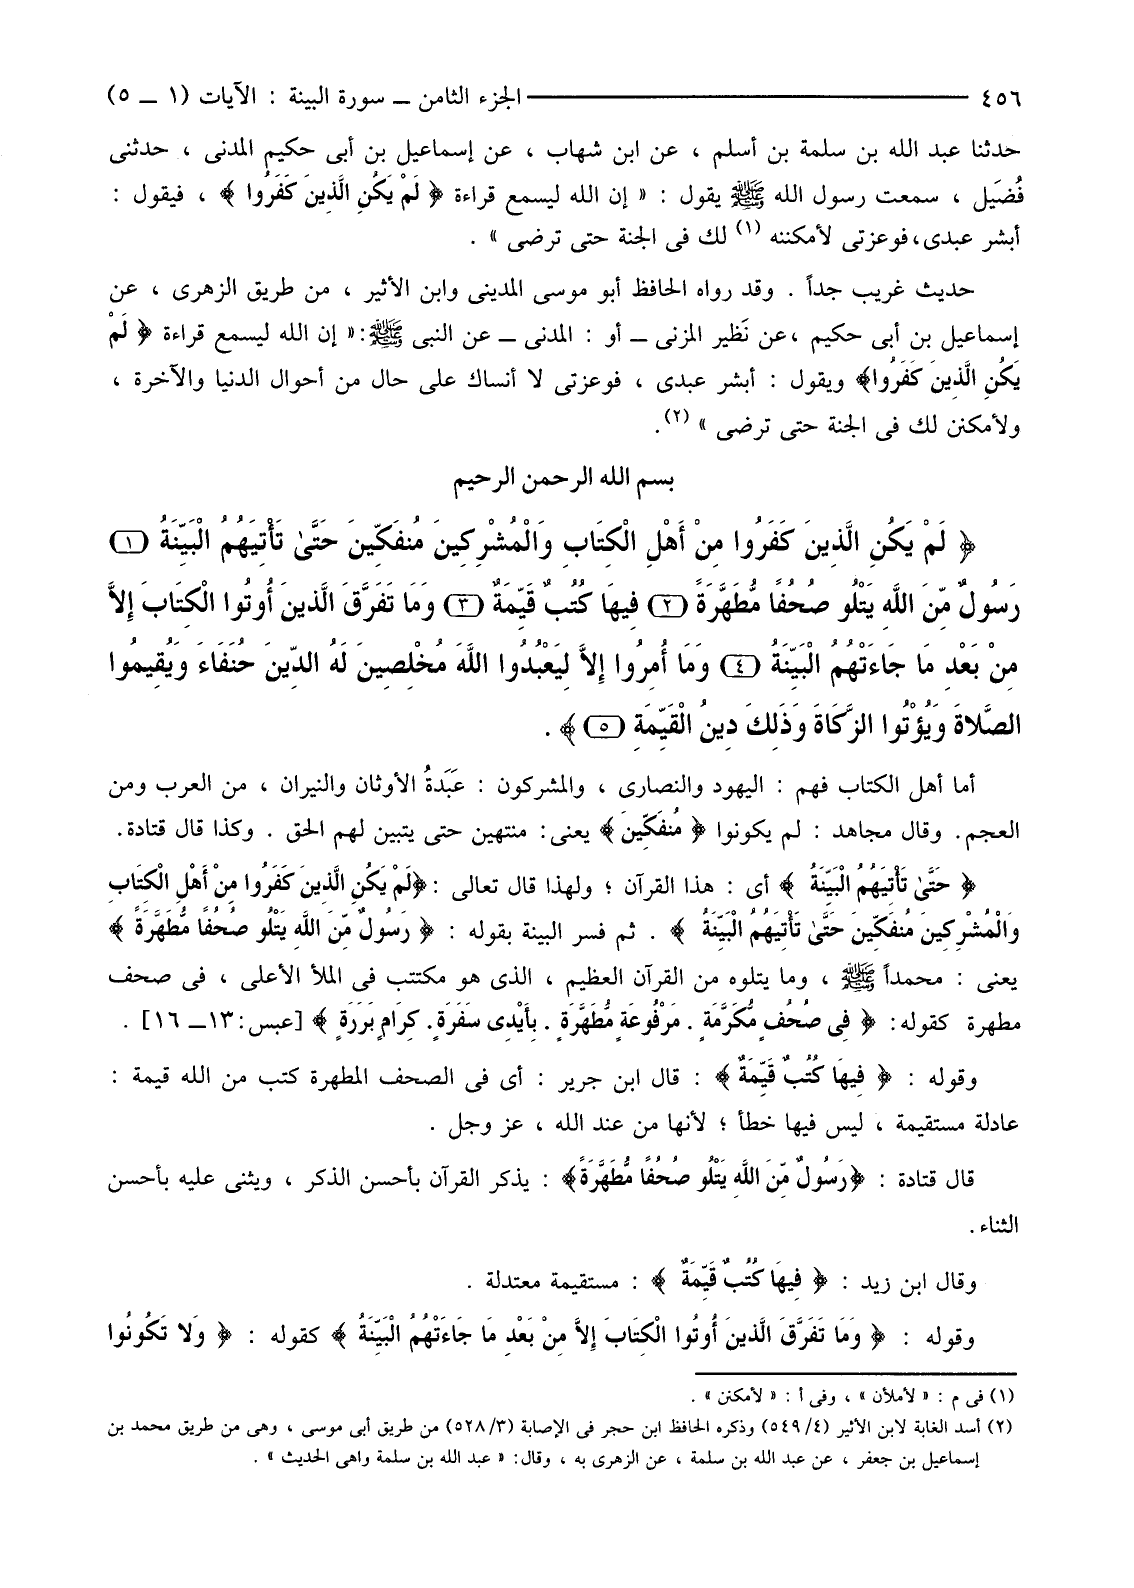 ٤٥٦ ــــــــــــــــــــ الجزء الثامن ــ سورة البينة : الآيات (١ ــ ٥)
حدثنا عبد الله بن سلمة بن أسلم ، عن ابن شهاب ، عن إسماعيل بن أبى حكيم المدنى ، حدثنى
فُضَيل ، سمعت رسول الله ﷺ يقول : « إن الله ليسمع قراءة ﴿ لَمْ يَكُنِ الَّذِينَ كَفَرُوا ﴾ ، فيقول :
أبشر عبدى،فوعزتى لأمكننه (١) لك فى الجنة حتى ترضى » .
حديث غريب جداً . وقد رواه الحافظ أبو موسى المدينى وابن الأثير ، من طريق الزهرى ، عن
إسماعيل بن أبى حكيم ،عن نَظير المزنى ــ أو : المدنى ــ عن النبى ﷺ:« إن الله ليسمع قراءة ﴿ لَمْ
يَكُنِ الَّذِينَ كَفَرُوا﴾ ويقول : أبشر عبدى ، فوعزتى لا أنساك على حال من أحوال الدنيا والآخرة ،
ولأمكنن لك فى الجنة حتى ترضى » (٢).
بسم الله الرحمن الرحيم
﴿ لَمْ يَكُنِ الَّذِينَ كَفَرُوا مِنْ أَهْلِ الْكِتَابِ وَالْمُشْرِكِينَ مُنفَكِّينَ حَتَّىٰ تَأْتِيَهُمُ الْبَيِّنَةُ (١)
رَسُولٌ مِّنَ اللَّهِ يَتْلُو صُحُفًا مُّطَهَّرَةً (٢) فِيهَا كُتُبٌ قَيِّمَةٌ (٣) وَمَا تَفَرَّقَ الَّذِينَ أُوتُوا الْكِتَابَ إِلاَّ
مِنْ بَعْدِ مَا جَاءَتْهُمُ الْبَيِّنَةُ (٤) وَمَا أُمِرُوا إِلاَّ لِيَعْبُدُوا اللَّهَ مُخْلِصِينَ لَهُ الدِّينَ حُنَفَاءَ وَيُقِيمُوا
الصَّلاةَ وَيُؤْتُوا الزَّكَاةَ وَذَلِكَ دِينُ الْقَيِّمَةِ (٥) ﴾ .
أما أهل الكتاب فهم : اليهود والنصارى ، والمشركون : عَبَدةُ الأوثان والنيران ، من العرب ومن
العجم. وقال مجاهد : لم يكونوا ﴿ مُنفَكِّينَ ﴾ يعنى: منتهين حتى يتبين لهم الحق . وكذا قال قتادة.
﴿ حَتَّىٰ تَأْتِيَهُمُ الْبَيِّنَةُ ﴾ أى : هذا القرآن ؛ ولهذا قال تعالى :﴿لَمْ يَكُنِ الَّذِينَ كَفَرُوا مِنْ أَهْلِ الْكِتَابِ
وَالْمُشْرِكِينَ مُنفَكِّينَ حَتَّىٰ تَأْتِيَهُمُ الْبَيِّنَةُ ﴾ . ثم فسر البينة بقوله : ﴿ رَسُولٌ مِّنَ اللَّهِ يَتْلُو صُحُفًا مُّطَهَّرَةً ﴾
يعنى : محمداً ﷺ ، وما يتلوه من القرآن العظيم ، الذى هو مكتتب فى الملأ الأعلى ، فى صحف
مطهرة كقوله: ﴿ فِى صُحُفٍ مُّكَرَّمَةٍ . مَرْفُوعَةٍ مُّطَهَّرَةٍ . بِأَيْدِى سَفَرَةٍ. كِرَامٍ بَرَرَةٍ ﴾ [عبس:١٣ــ ١٦] .
وقوله : ﴿ فِيهَا كُتُبٌ قَيِّمَةٌ ﴾ : قال ابن جرير : أى فى الصحف المطهرة كتب من الله قيمة :
عادلة مستقيمة ، ليس فيها خطأ ؛ لأنها من عند الله ، عز وجل .
قال قتادة : ﴿رَسُولٌ مِّنَ اللَّهِ يَتْلُو صُحُفًا مُّطَهَّرَةً﴾ : يذكر القرآن بأحسن الذكر ، ويثنى عليه بأحسن
الثناء.
وقال ابن زيد : ﴿ فِيهَا كُتُبٌ قَيِّمَةٌ ﴾ : مستقيمة معتدلة .
وقوله : ﴿ وَمَا تَفَرَّقَ الَّذِينَ أُوتُوا الْكِتَابَ إِلاَّ مِنْ بَعْدِ مَا جَاءَتْهُمُ الْبَيِّنَةُ ﴾ كقوله : ﴿ وَلا تَكُونُوا
(١) فى م : « لأملأن » ، وفى أ : « لأمكنن » .
(٢) أسد الغابة لابن الأثير (٤/ ٥٤٩) وذكره الحافظ ابن حجر فى الإصابة (٣/ ٥٢٨) من طريق أبى موسى ، وهى من طريق محمد بن
إسماعيل بن جعفر ، عن عبد الله بن سلمة ، عن الزهرى به ، وقال: « عبد الله بن سلمة واهى الحديث » .